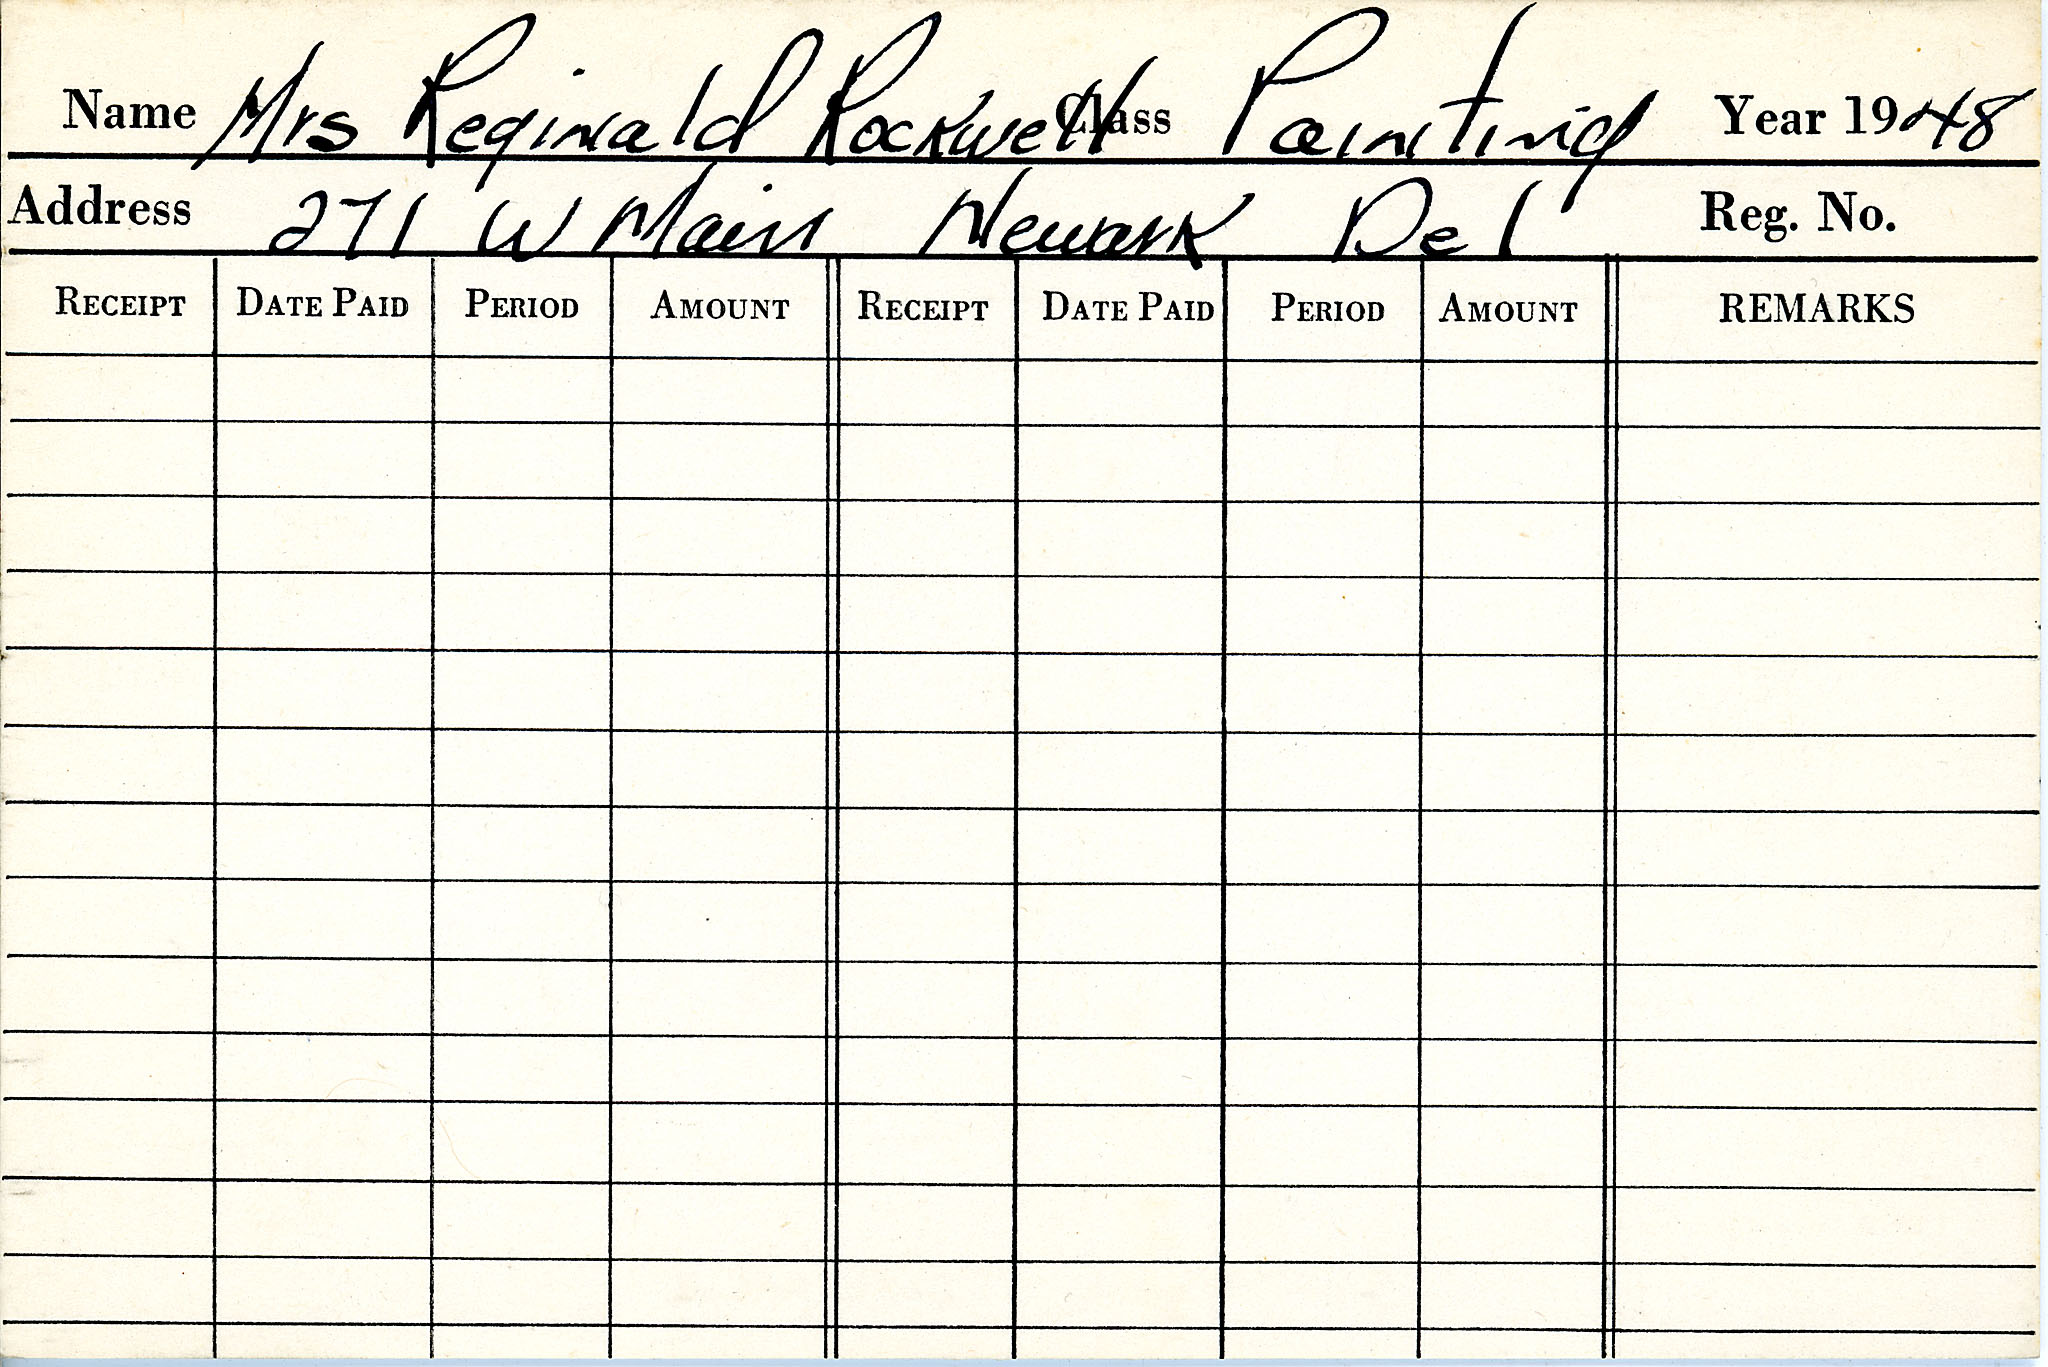 Name Mrs Reginald Rockwell Class Painting Year 1948
Address 271 W Main Newark Del Reg. No.
RECEIPT DATE PAID PERIOD AMOUNT RECEIPT DATE PAID PERIOD AMOUNT REMARKS